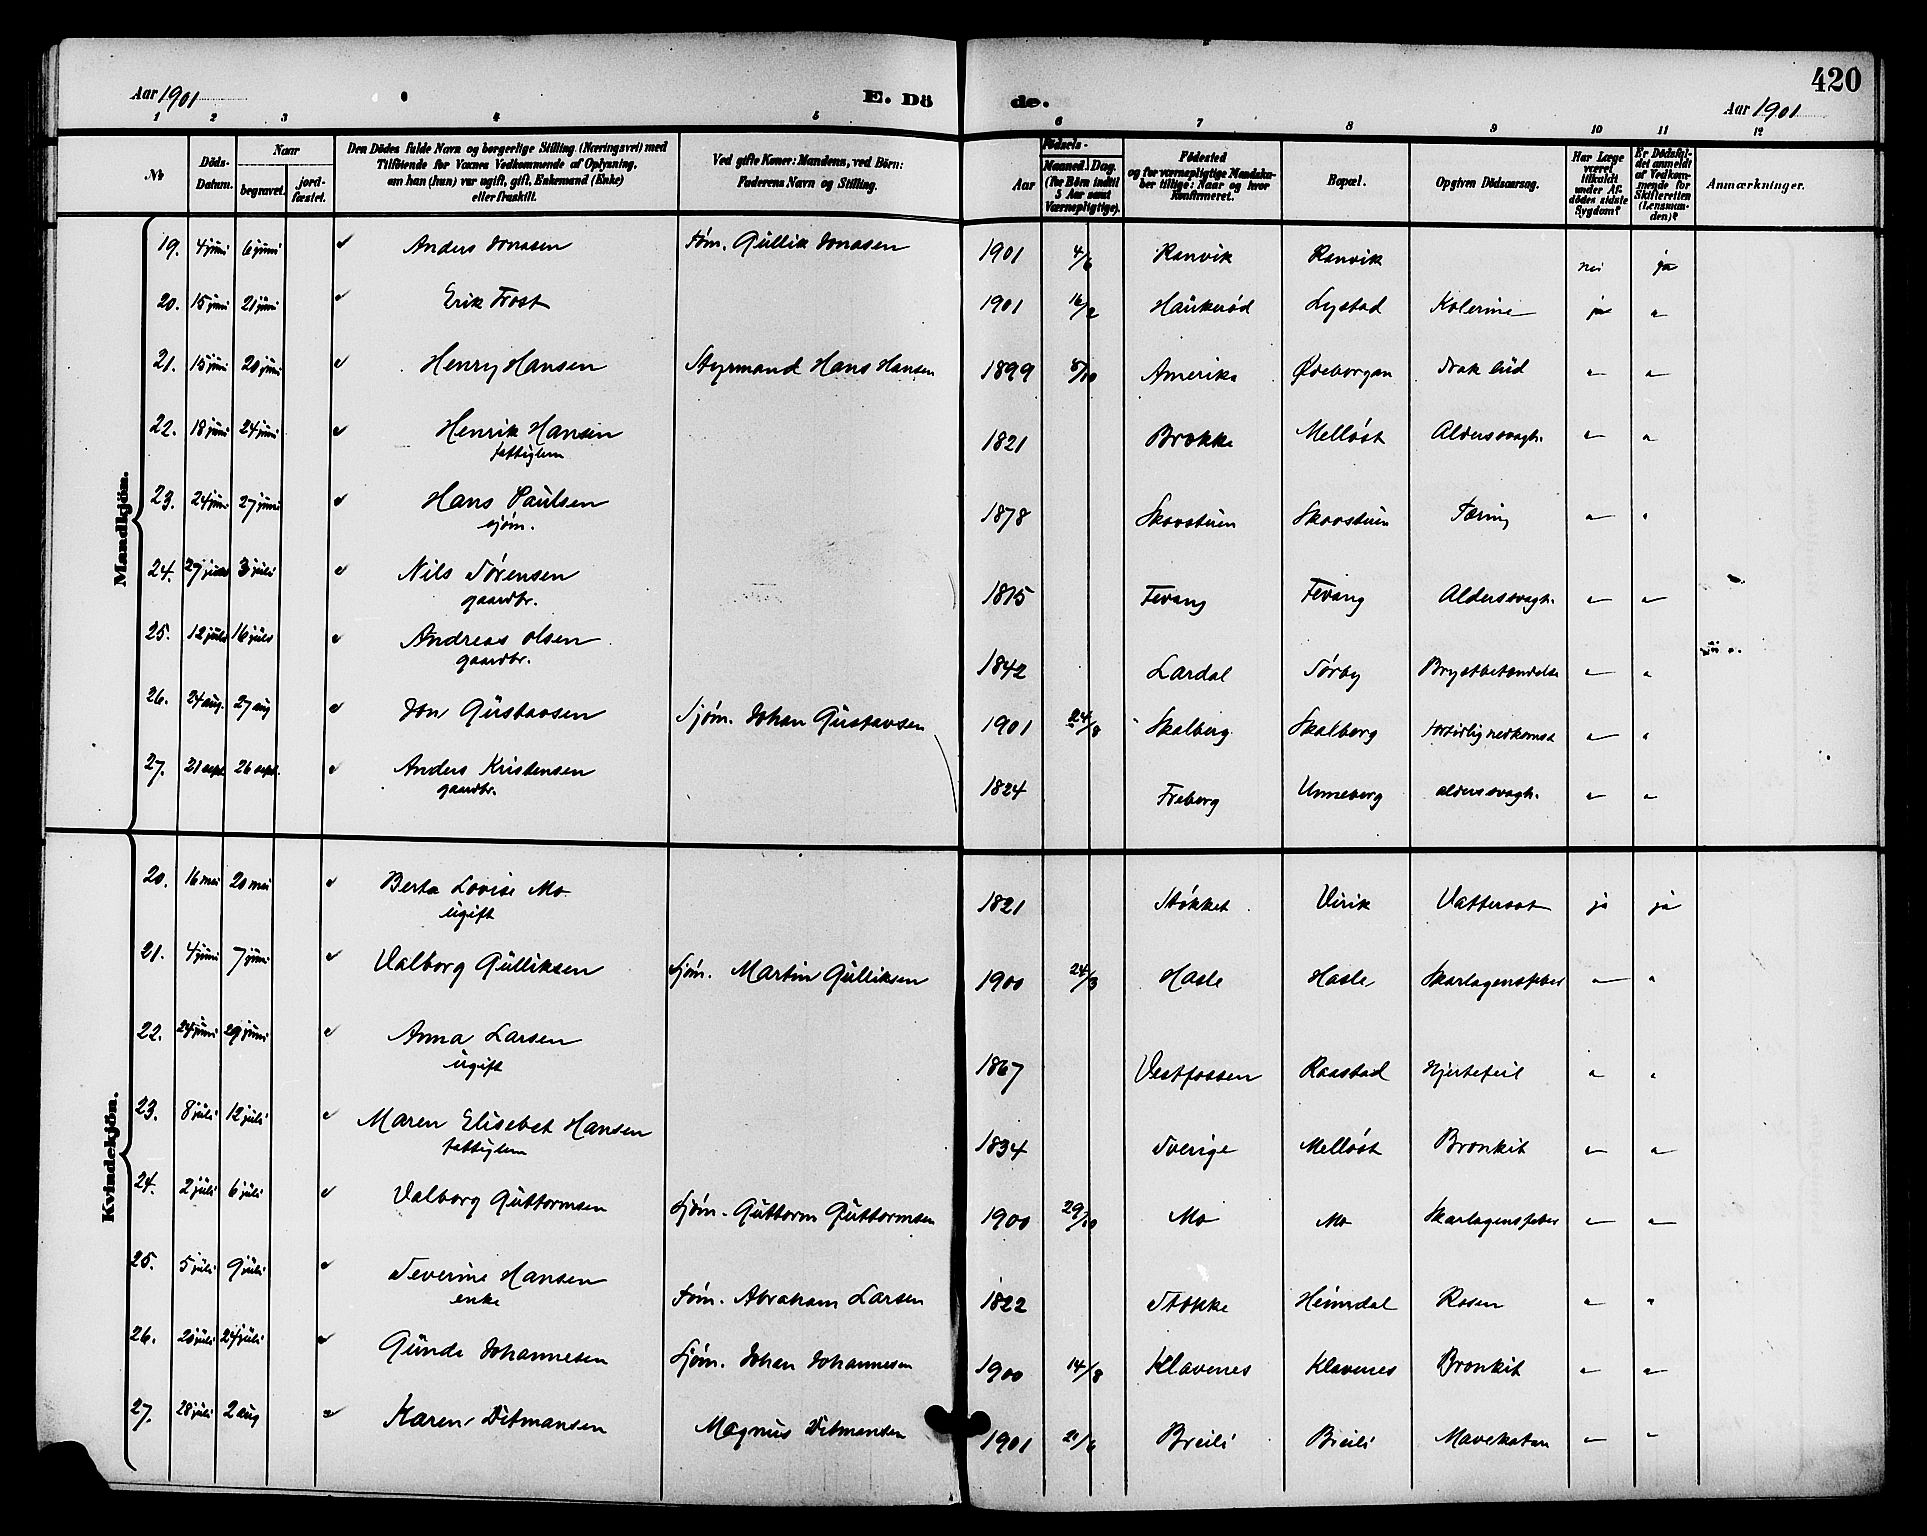 420
Aar 1901 E. Dö de. Aar 1901
1 2 3 4 5 6 7 8 9 10 11 12
No
Döds-Datum.
Naar
begravet.
jord-fæstet.
Den Dödes fulde Navn og borgerlige Stilling (Næringsvei) med
Tilföiende for Voxnes Vedkommende af Oplysning,
om han (hun) var ugift, gift, Enkemand (Enke)
eller fraskilt.
Ved gifte Koner: Mandens, ved Börn:
Faderens Navn og Stilling.
Födsels-
Aar
Maaned. Dag.
(for Börn indtil
5 Aar samt
Værnepligtige).
Födested
og for værnepligtige Mandska-
ber tillige: Naar og hvor
Konfirmeret.
Bopæl.
Opgiven Dödsaarsag.
Har Læge
været
tilkaldt
under Af-
dödes sidste
Sygdom?
Er Dödsfal-
det anmeldt
af Vedkom-
mende for
Skifteretten
(Lensman-
den)?
Anmærkninger.
Mandkjön.
19. 4 juni 6 juni Anders Jonasen Søm. Gullik Jonasen 1901 4/6 Ranvik Ranvik nei ja
20. 15 juni 21 juni Erik Frost 1901 16/2 Haukerød Lystad Kolerine ja "
21. 15 juni 20 juni Henry Hansen Styrmand Hans Hansen 1899 8/10 Amerika Ødeborgan " "
22. 18 juni 24 juni Henrik Hansen 1821 Brekke Melløst Aldersvagh. " "
fattiglem
23. 24 juni 27 juni Hans Paulsen 1878 Skovsturen Skovsturen Tæring " "
sjøm.
24. 29 juni 3 juli Nils Sørensen 1815 Fevang Fevang Aldersvagh. " "
gaardbr.
25. 12 juli 16 juli Andreas Olsen 1842 Lardal Sørby Brystbetændelse " "
gaardbr.
26. 24 aug. 27 aug Jon Gustavsen Sjøm. Johan Gustavsen 1901 24/8 Skalberg Skalberg fortidlig nedkomst " "
27. 21 sept. 26 sept. Anders Kristensen 1824 Freberg Unneberg alderssvagh. " "
gaardbr.
Kvindekjön.
20. 16 mai 20 mai Berta Lovise Mo 1821 Stokket Virik Vattersot ja ja
ugift
21. 4 juni 7 juni Valborg Gulliksen Sjøm. Martin Gulliksen 1900 24/3 Hasle Hasle Skarlagensfeber " "
22. 24 juni 29 juni Anna Larsen 1867 Vestfossen Raastad Hjertefeil " "
ugift
23. 8 juli 12 juli Maren Elisebet Hansen 1834 Sverige Melløst Bronkit " "
fattiglem
24. 2 juli 6 juli Valborg Guttormsen Sjøm. Guttorm Guttormsen 1900 29/10 Mo Mo Skarlagensfeber " "
25. 5 juli 9 juli Severine Hansen Søm. Abraham Larsen 1822 Stokke Heimdal Rosen " "
enke
26. 20 juli 24 juli Gunda Johannesen Sjøm. Johan Johannesen 1900 14/8 Klavenes Klavenes Bronkit " "
27. 28 juli 2 aug Karen Ditmansen Magnus Ditmansen 1901 21/6 Breili Breili Mavekatar " "